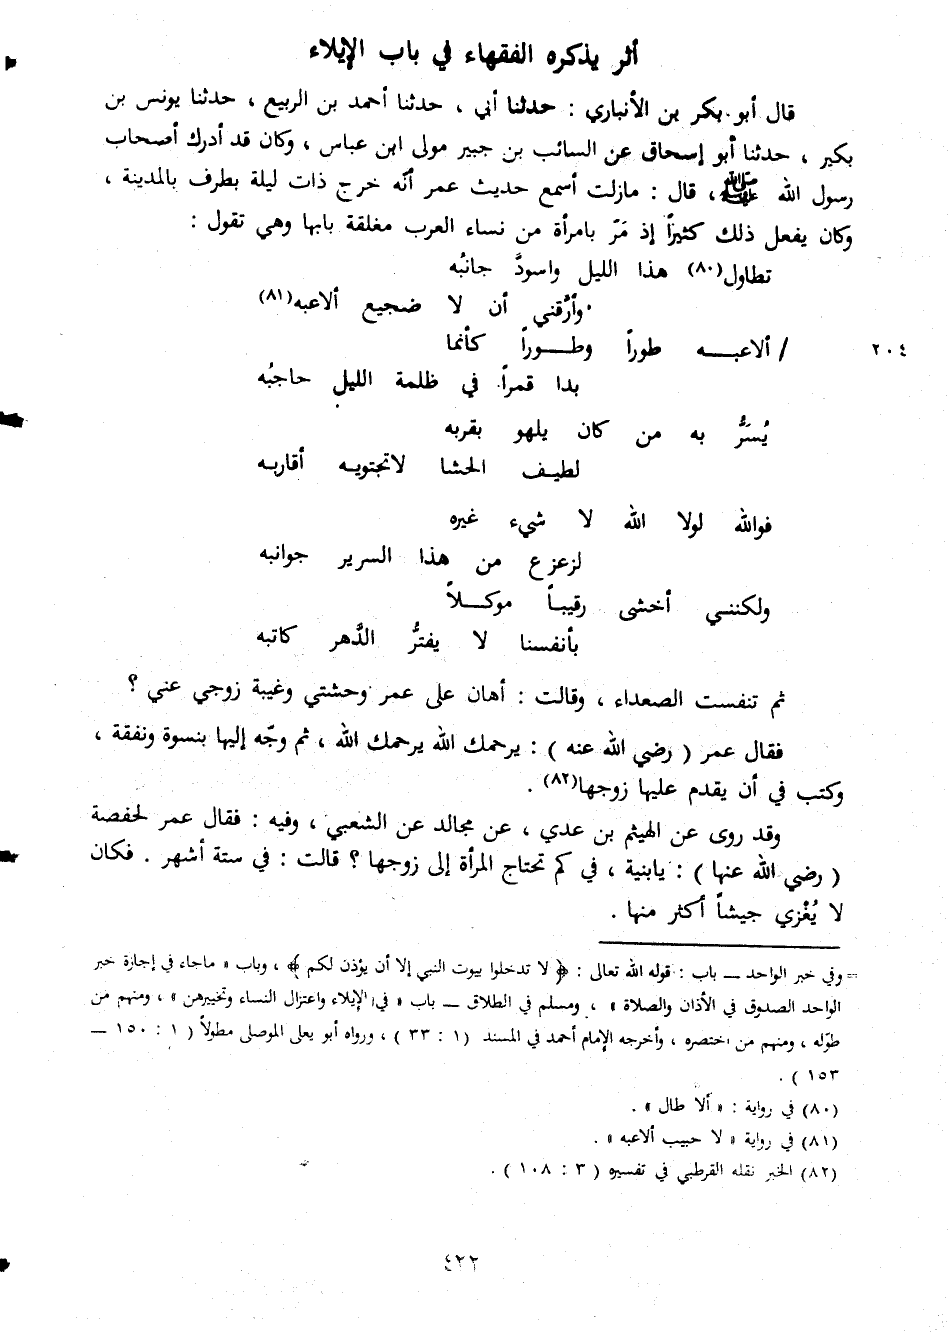 أثر يذكره الفقهاء في باب الإيلاء
قال أبو بكر بن الأنباري : حدثنا أبي ، حدثنا أحمد بن الربيع ، حدثنا يونس بن
بكير ، حدثنا أبو إسحاق عن السائب بن جبير مولى ابن عباس ، وكان قد أدرك أصحاب
رسول الله ﷺ ، قال : مازلت أسمع حديث عمر أنّه خرج ذات ليلة بطرف بالمدينة ،
وكان يفعل ذلك كثيراً إذ مَرّ بامرأة من نساء العرب مغلقة بابها وهي تقول :
تطاول(٨٠) هذا الليل واسودَّ جانبُه
وأرَّقني أن لا ضجيع ألاعبه(٨١)
٢٠٤ / ألاعبــه طوراً وطــوراً كأنما
بدا قمراً في ظلمة الليل حاجبُه
يُسَرُّ به من كان يلهو بقربه
لطيـف الحشا لاتجتويـه أقاربـه
فوالله لولا الله لا شيء غيره
لزعزع من هذا السرير جوانبه
ولكننـي أخشى رقيبـاً موكـلاً
بأنفسنا لا يفترُّ الدَّهر كاتبه
ثم تنفست الصعداء ، وقالت : أهان على عمر وحشتي وغيبة زوجي عني ؟
فقال عمر ( رضي الله عنه ) : يرحمك الله يرحمك الله ، ثم وجّه إليها بنسوة ونفقة ،
وكتب في أن يقدم عليها زوجها(٨٢) .
وقد روى عن الهيثم بن عدي ، عن مجالد عن الشعبي ، وفيه : فقال عمر لحفصة
( رضي الله عنها ) : يابنية ، في كم تحتاج المرأة إلى زوجها ؟ قالت : في ستة أشهر . فكان
لا يُغْزي جيشاً أكثر منها .
= وفي خبر الواحد ــ باب : قوله الله تعالى : ﴿ لا تدخلوا بيوت النبي إلا أن يؤذن لكم ﴾ ، وباب « ماجاء في إجازة خبر
الواحد الصدوق في الأذان والصلاة » ، ومسلم في الطلاق ــ باب « في الإيلاء واعتزال النساء وتخييرهن » ، ومنهم من
طوّله ، ومنهم من اختصره ، وأخرجه الإمام أحمد في المسند (١ : ٣٣ ) ، ورواه أبو يعلى الموصلى مطولاً ( ١ : ١٥٠ ــ
١٥٣ ) .
(٨٠) في رواية : « ألا طال » .
(٨١) في رواية « لا حبيب ألاعبه » .
(٨٢) الخبر نقله القرطبي في تفسيره ( ٣ : ١٠٨ ) .
٤٢٢